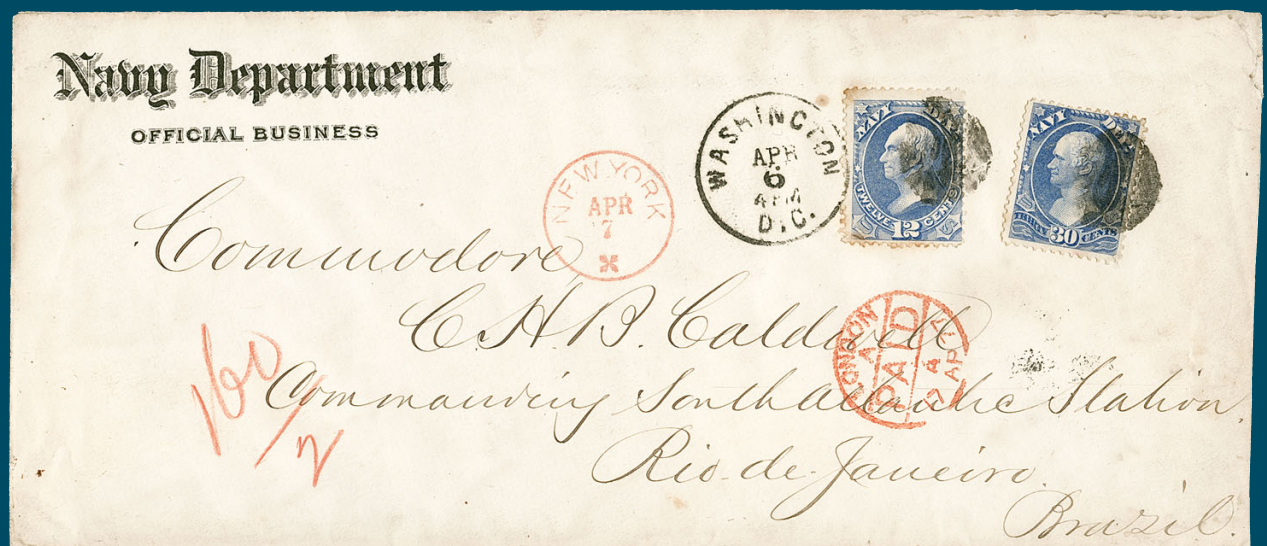 Navy Department
OFFICIAL BUSINESS
WASHINGTON
APR
6
4 PM
D.C.
NAVY DEPT
TWELVE 12 CENTS
U S
NAVY DEPT
THIRTY 30 CENTS
NEW YORK
APR
7
X
Commodore
C.H.B. Caldwell
Commanding South Atlantic Station
Rio de Janeiro
Brazil.
LONDON
A
PAID
17 AP
160/2